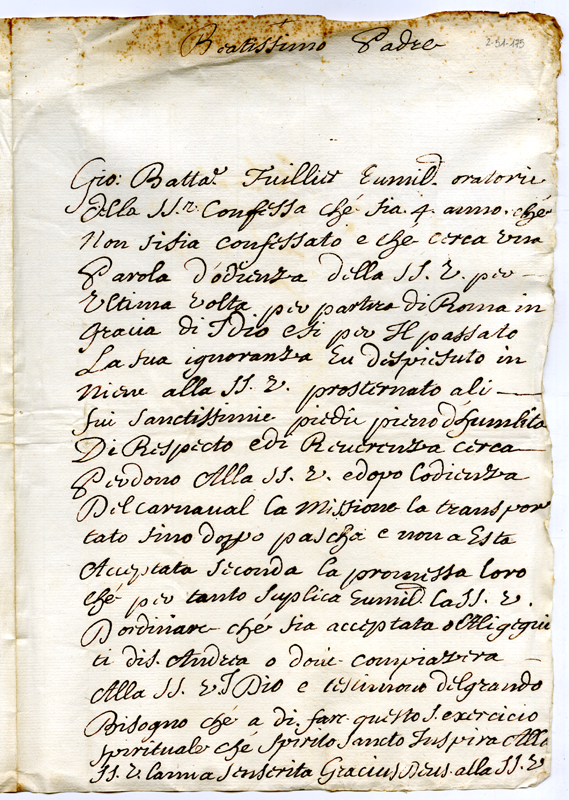 Beatissimo Padre
2-51-175
Gio: Batta. Fuillier Eumild. oratorie
della SS.r Confessa ché sia 4. anno. ché
Non sisia confessato e ché cerca vna
Parola d'odienza della SS. V. per
Vltima volta per partire di Roma in
gracia di Idio esi per Il passato
La sua ignoranza Eu despietuto in
niene alla SS. V. prosternato ali
sui sanctissimie piedii pieno d'humilta
Di Respecto edi Reuerenza cerca
Perdono Alla SS. V. edopo Lodienza
Del carnaual La Missione la transpor
tato sino doppo pascha e non a Esta
Acceptata seconda la promessa loro
ché per tanto suplica Eumild. la SS. V.
D'ordinare ché sia acceptata o Alli
ti di S. Andrea o doue compiacera
Alla SS. V. Idio e testimone delgrando
Bisogno ché a di fare questo S. exercicio
spirituale ché spirito sancto Inspira Alla
SS. V. Deus alla SS. V.